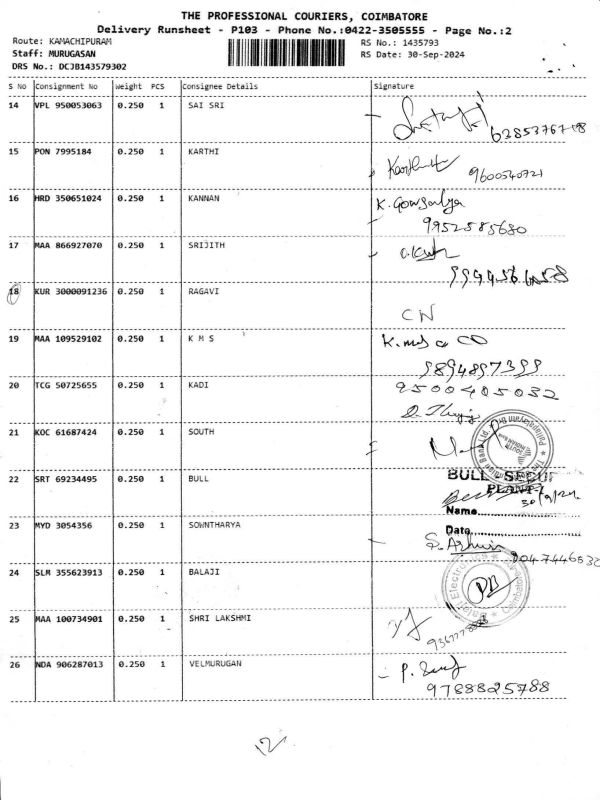 THE PROFESSIONAL COURIERS, COIMBATORE
Delivery Runsheet - P103 - Phone No.:0422-3505555 - Page No.:2
Route: KAMACHIPURAM RS No.: 1435793
Staff: MURUGASAN RS Date: 30-Sep-2024
DRS No.: DCJB143579302
S No Consignment No Weight PCS Consignee Details Signature
14 VPL 950053063 0.250 1 SAI SRI
15 PON 7995184 0.250 1 KARTHI
9600540721
16 HRD 350651024 0.250 1 KANNAN K. Gowsalya
9952585680
17 MAA 866927070 0.250 1 SRIJITH
18 KUR 3000091236 0.250 1 RAGAVI
CN
19 MAA 109529102 0.250 1 K M S
9894897399
20 TCG 50725655 0.250 1 KADI 9500405032
21 KOC 61687424 0.250 1 SOUTH
22 SRT 69234495 0.250 1 BULL BULL
30/9/24
Name
23 MYD 3054356 0.250 1 SOWNTHARYA Date
S. Ashwin
24 SLM 355623913 0.250 1 BALAJI
25 MAA 100734901 0.250 1 SHRI LAKSHMI
26 NDA 906287013 0.250 1 VELMURUGAN
9788825788
12